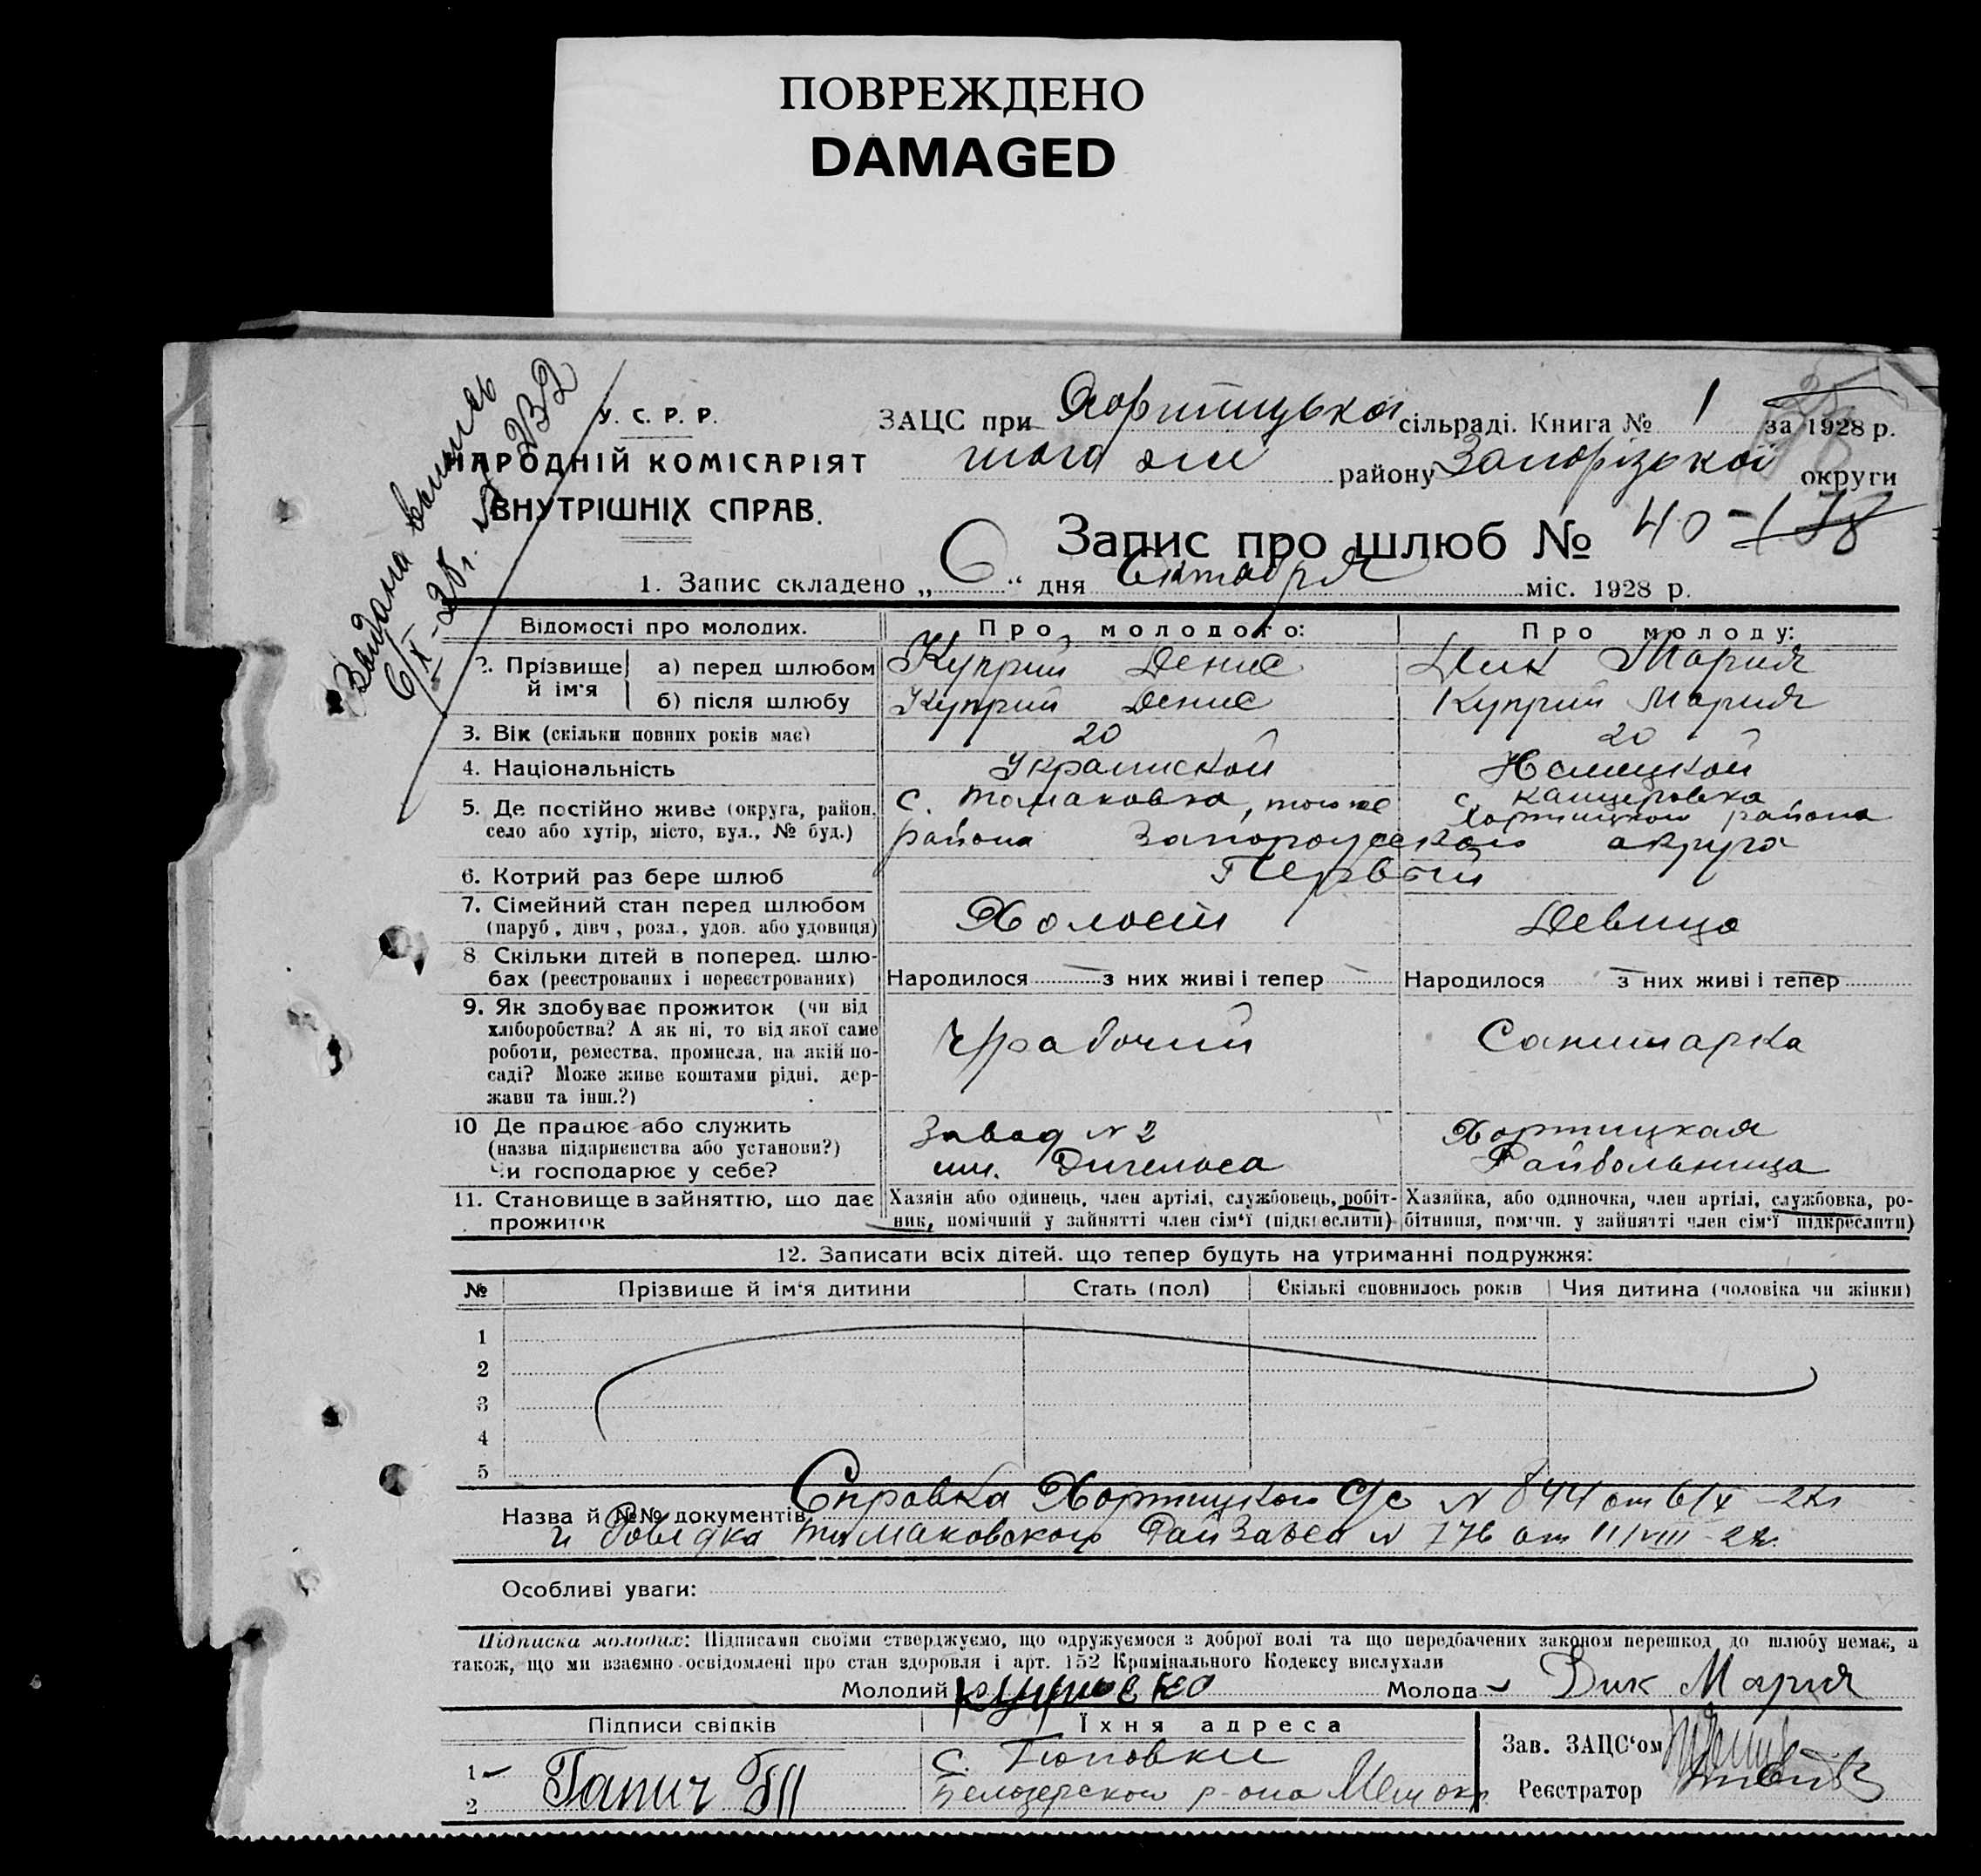 ПОВРЕЖДЕНО
DAMAGED
Выдана выпись
6/X-28г. № 232
У. С. Р. Р.
НАРОДНІЙ КОМІСАРІЯТ
ВНУТРІШНІХ СПРАВ.
ЗАЦС при Хортицькой сільраді. Книга № 1 за 1928 р.
того же району Запорізької округи
Запис про шлюб № 40 - 138
1. Запис складено „ 6 “ дня Октября міс. 1928 р.
Відомості про молодих. Про молодого: Про молоду:
2. Прізвище й ім'я а) перед шлюбом Куприй Денис Дик Мария
б) після шлюбу Куприй Денис Куприй Мария
3. Вік (скільки повних років має) 20 20
4. Національність Украинской Немецкой
5. Де постійно живе (округа, район, село або хутір, місто, вул., № буд.) с. Томаковка, того же района с. Канцеровка Хортицкого района
Запорожского округа
6. Котрий раз бере шлюб Первый
7. Сімейний стан перед шлюбом (паруб., дівч., розл., удов. або удовиця) Холост Девица
8 Скільки дітей в поперед. шлюбах (реєстрованих і нереєстрованих) Народилося — з них живі і тепер — Народилося — з них живі і тепер —
9. Як здобуває прожиток (чи від хліборобства? А як ні, то від якої саме роботи, ремества, промисла, на якій посаді? Може живе коштами рідні, держави та інш.?) Ч/рабочий Санитарка
10 Де працює або служить (назва підприєнства або установи?) Чи господарює у себе? Завод № 2 им. Энгельса Хортицкая Райбольница
11. Становище в зайняттю, що дає прожиток Хазяін або одинець, член артілі, службовець, робітник, помічний у зайнятті член сім'ї (підкреслити) Хазяйка, або одиночка, член артілі, службовка, робітниця, пом'чн. у зайнятті член сім'ї підкреслити)
12. Записати всіх дітей. що тепер будуть на утриманні подружжя:
№ Прізвище й ім'я дитини Стать (пол) Скількі сповнилось років Чия дитина (чоловіка чи жінки)
1
2
3
4
5
Назва й №№ документів. Справка Хортицкого С/с № 844 от 6/X - 28г
и Довідка Томаковского РайЗагса № 776 от 11/VIII - 28г.
Особливі уваги:
Підписка молодих: Підписами своїми стверджуємо, що одружуємося з доброї волі та що передбачених законом перешкод до шлюбу немає, а
також, що ми взаємно освідомлені про стан здоровля і арт. 152 Кримінального Кодексу вислухали
Молодий Молода Дик Мария
Підписи свідків Їхня адреса
1 Гапич с. Поповки
2 Белозерского р-она Мел окр.
Зав. ЗАЦС'ом
Реєстратор